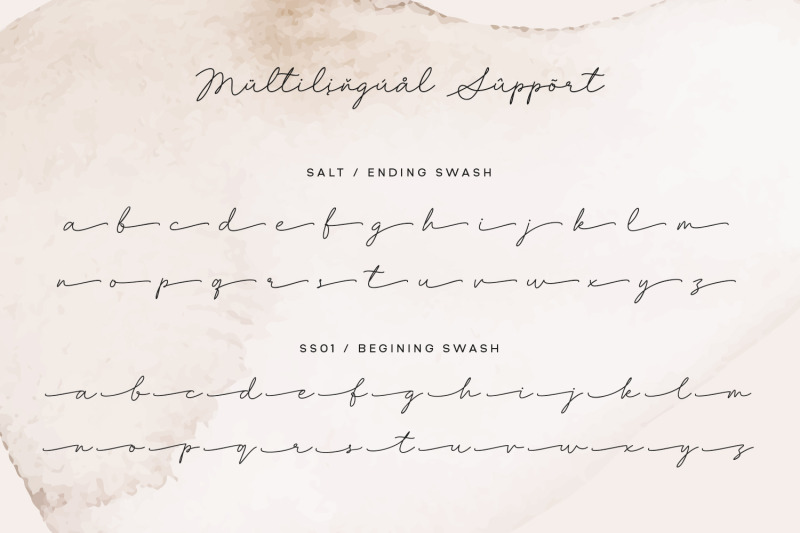 Mūltilịñgúål Sûppõrt
SALT / ENDING SWASH
a b c d e f g h i j k l m
n o p q r s t u v w x y z
SS01 / BEGINING SWASH
a b c d e f g h i j k l m
n o p q r s t u v w x y z